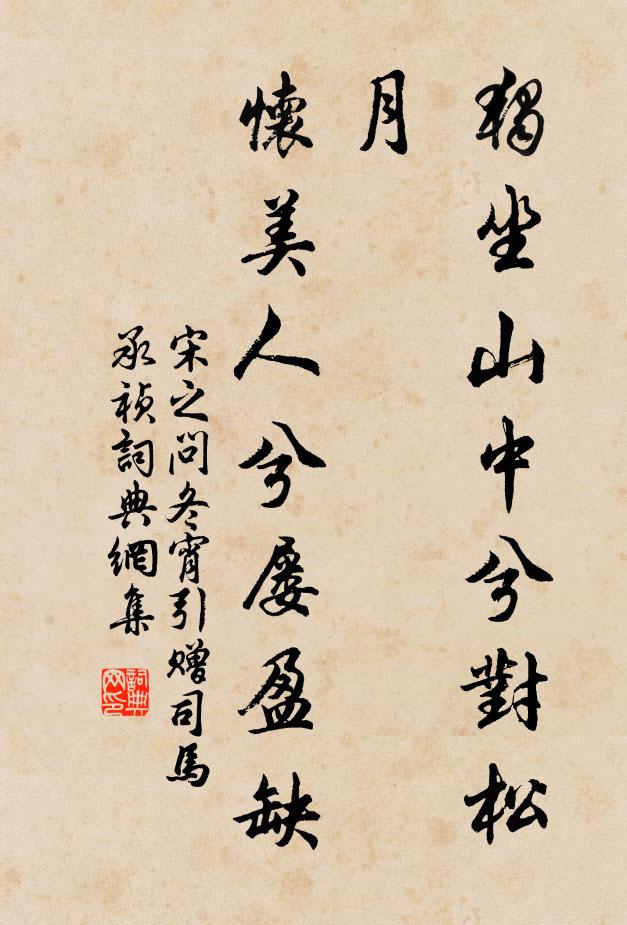 獨坐山中兮對松
月
懷美人兮屢盈缺
宋之問冬宵引贈司馬
承禎詞典網集
詞典
网印